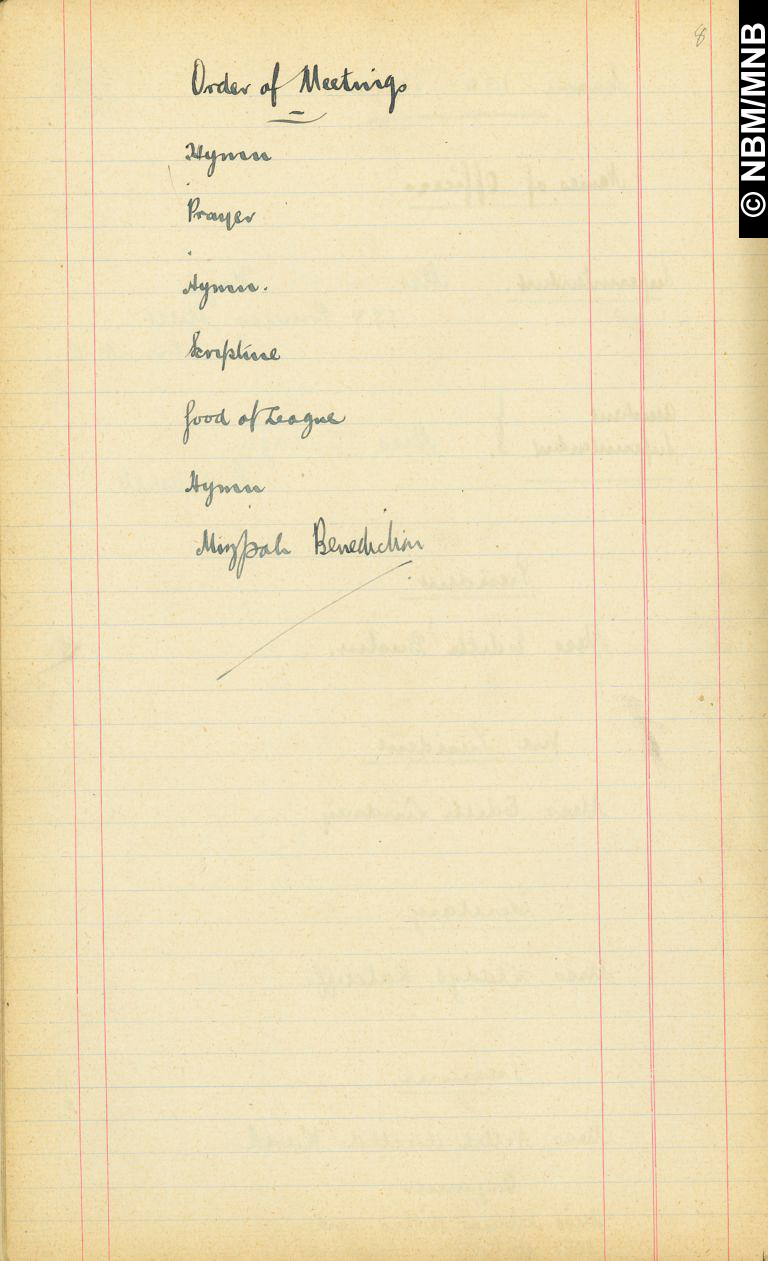 8
Order of Meetings
Hymn
Prayer
Hymn.
Scripture
Good of League
Hymn
Mizpah Benediction
© NBM/MNB